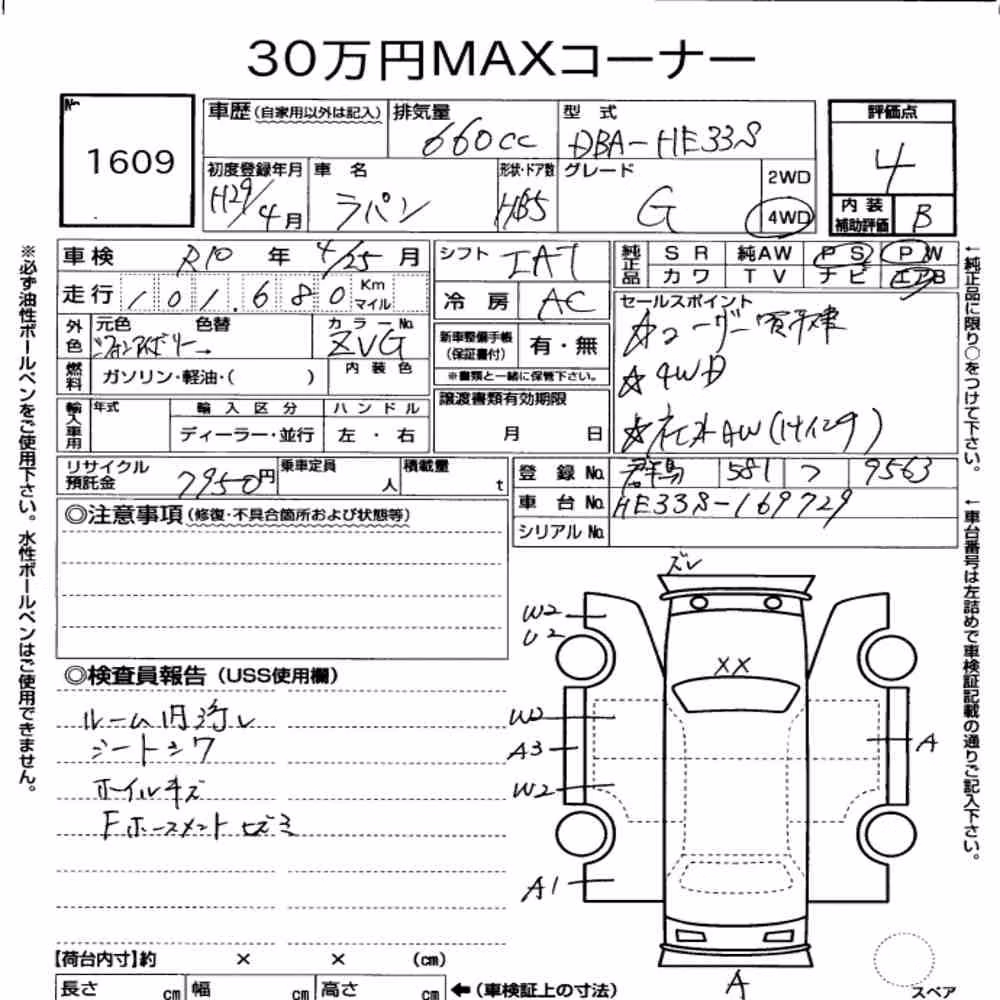 30万円MAXコーナー
No 1609
車歴(自家用以外は記入) 排気量 660cc 型式 DBA-HE33S 評価点 4
初度登録年月 H29/4月 車名 ラパン 形状・ドア数 HB5 グレード G 2WD 4WD 内装補助評価 B
車検 R10年 4/25月 シフト IAT 純正品 SR 純AW PS PW
走行 101,680 Km マイル 冷房 AC カワ TV ナビ エアB
外色 元色 色替 カラーNo. ZVG
新車整備手帳(保証書付) 有・無
※書類と一緒に保管下さい。
燃料 ガソリン・軽油・( ) 内装色
セールスポイント
☆ユーザー買取車
☆4WD
☆社外AW(14インチ)
輸入車用 年式 輸入区分 ハンドル
ディーラー・並行 左・右
譲渡書類有効期限
月 日
リサイクル預託金 7950円 乗車定員 人 積載量 t
登録No. 群馬 581 フ 9563
車台No. HE33S-169729
シリアルNo.
◎注意事項(修復・不具合箇所および状態等)
◎検査員報告(USS使用欄)
ルーム内汚レ
シートシワ
ホイルキズ
ズレ
W2
U2
XX
W2
A3
W2
A1
A
A
スペア
【荷台内寸】約 × × (cm)
長さ cm 幅 cm 高さ cm ←(車検証上の寸法)
※必ず油性ボールペンをご使用下さい。水性ボールペンはご使用できません。
←純正品に限り○をつけて下さい。
←車台番号は左詰めで車検証記載の通りご記入下さい。